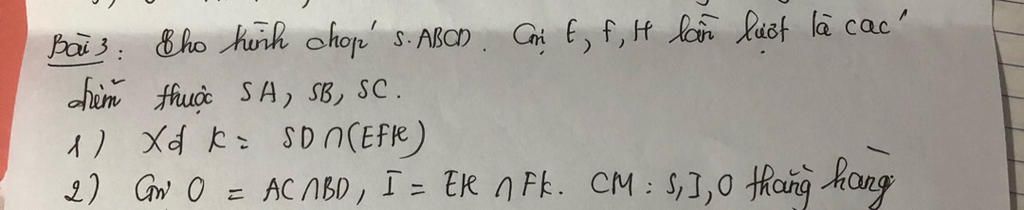 Bài 3: Cho hình chóp S.ABCD. Gọi E, F, H lần lượt là các
điểm thuộc SA, SB, SC.
1) Xđ K = SD ∩ (EFH)
2) Gọi O = AC ∩ BD, I = EH ∩ FK. CM: S, I, O thẳng hàng